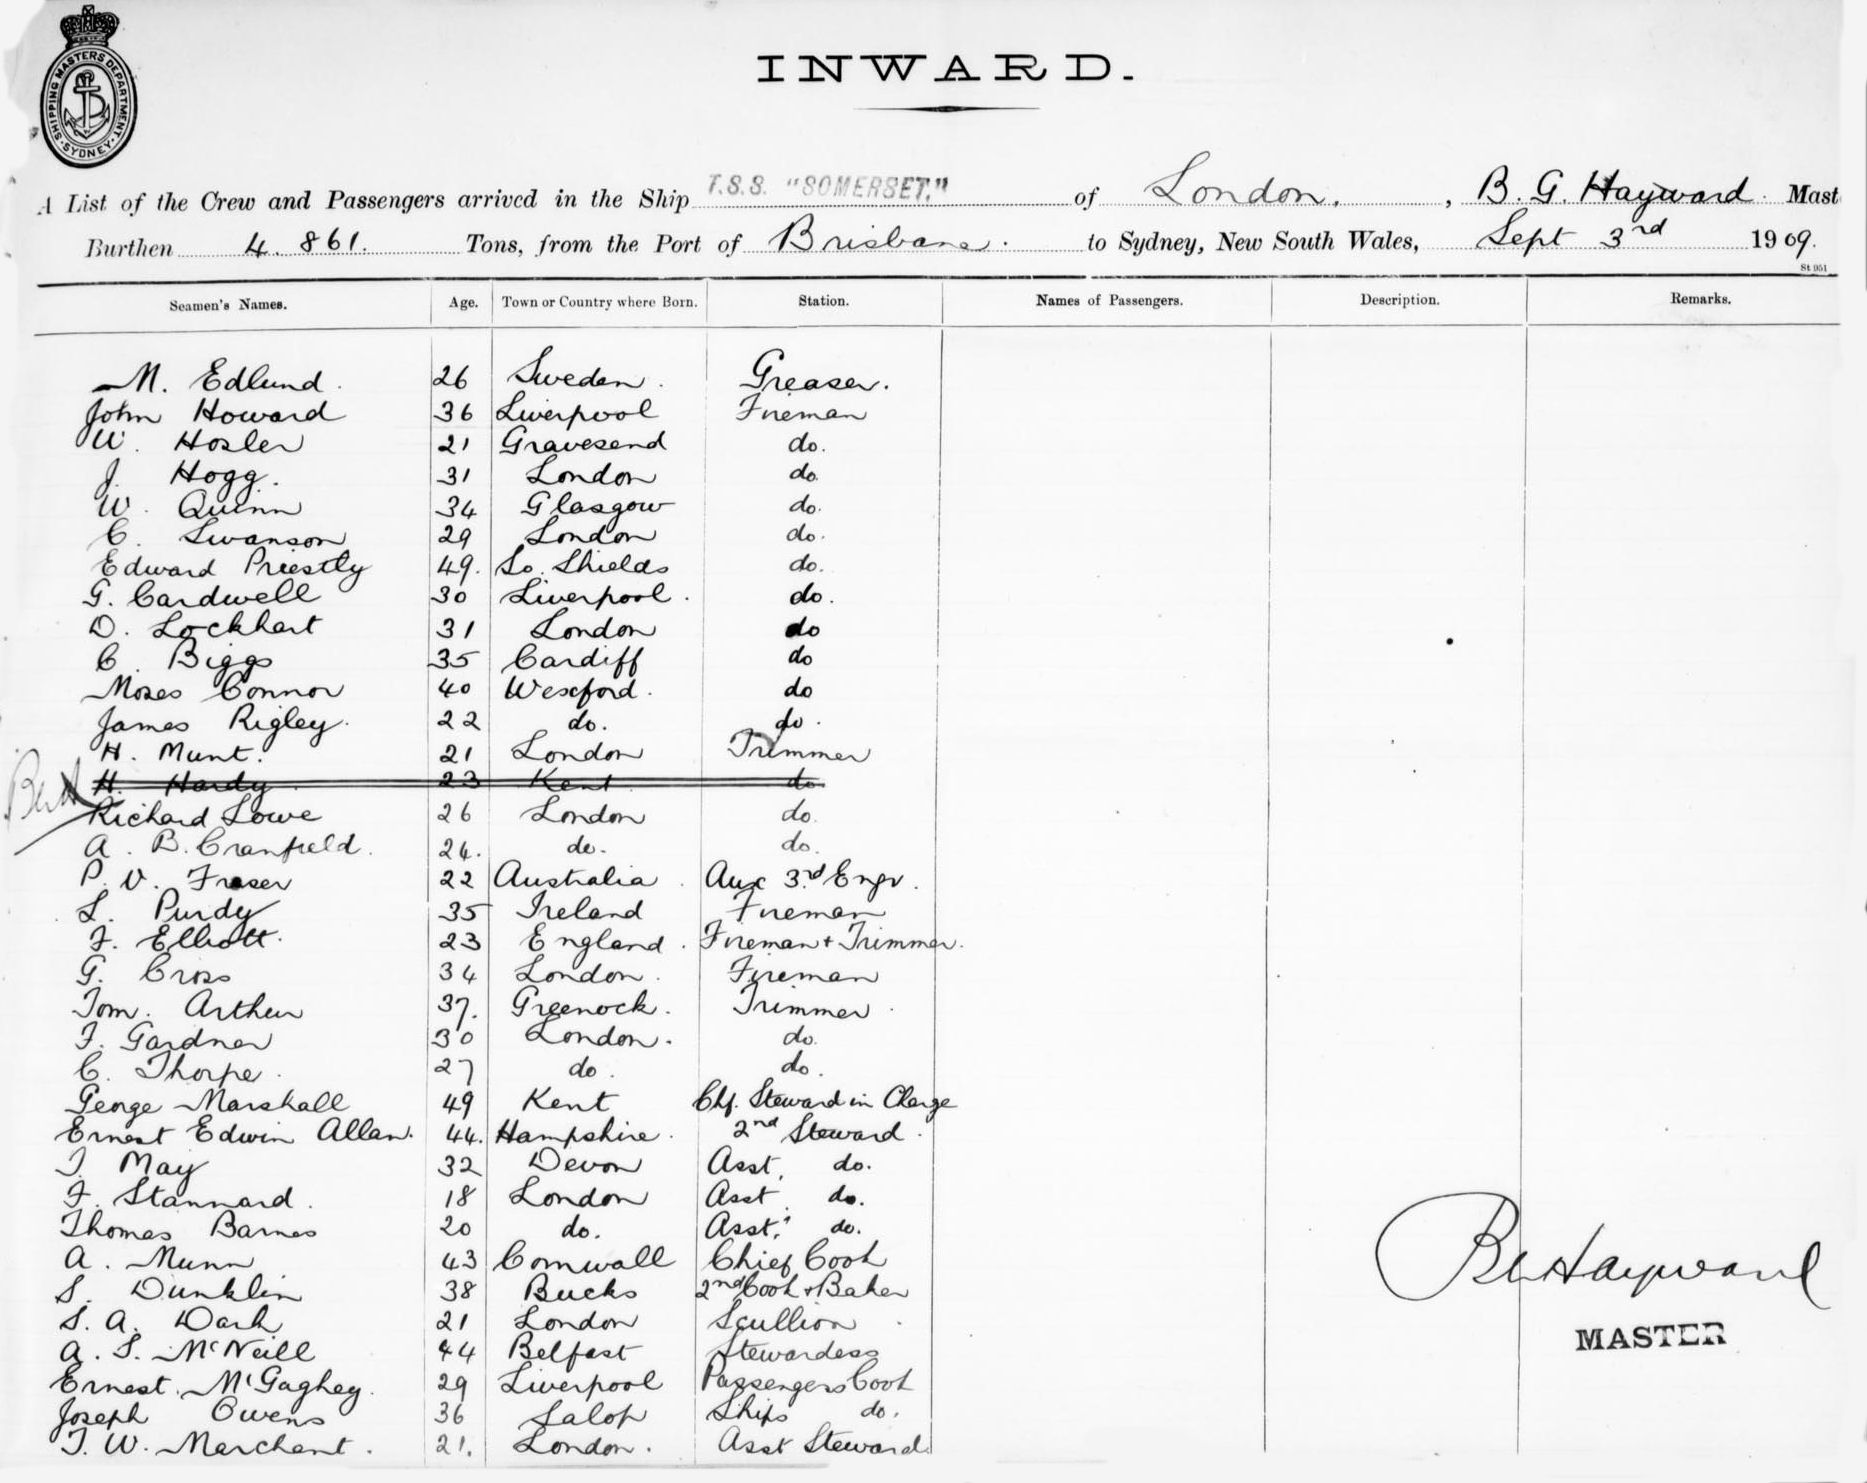 SHIPPING MASTERS DEPARTMENT
SYDNEY
INWARD.
A List of the Crew and Passengers arrived in the Ship T.S.S. "SOMERSET," of London, , B. G. Hayward Mast
Burthen 4.861. Tons, from the Port of Brisbane. to Sydney, New South Wales, Sept 3rd 1909.
St 951
Seamen's Names. Age. Town or Country where Born. Station. Names of Passengers. Description. Remarks.
M. Edlund. 26 Sweden. Greaser.
John Howard 36 Liverpool Fireman
W. Hosler 21 Gravesend do.
J. Hogg. 31 London do.
W. Quinn 34 Glasgow do.
C. Swanson 29 London do.
Edward Priestly 49. So. Shields do.
G. Cardwell 30 Liverpool. do.
D. Lockhart 31 London do
C. Biggs 35 Cardiff do
Moses Connor 40 Wexford. do
James Rigley. 22 do. do.
H. Munt. 21 London Trimmer
H. Hardy 23 Kent do
Richard Lowe 26 London do.
A. B. Cranfield. 24. do. do.
P. V. Fraser 22 Australia. Aux 3rd Engr.
L. Purdy 35 Ireland Fireman
F. Elliott. 23 England. Fireman + Trimmer.
G. Cross 34 London. Fireman
Tom. Arthur 37. Greenock. Trimmer.
F. Gardner 30 London. do.
C. Thorpe. 27 do. do.
George Marshall 49 Kent Chf. Steward in Charge
Ernest Edwin Allan. 44. Hampshire. 2nd Steward.
T. May 32 Devon Asst. do.
F. Stannard. 18 London Asst. do.
Thomas Barnes 20 do. Asst. do.
A. Munn 43 Cornwall Chief Cook
S. Dunklin 38 Bucks 2nd Cook + Baker
S. A. Dark 21 London Scullion.
A. S. McNeill 44 Belfast Stewardess
Ernest. McGaghey. 29 Liverpool Passengers Cook
Joseph Owens 36 Salop Ships do.
T. W. Merchant. 21. London. Asst Steward.
B G Hayward
MASTER